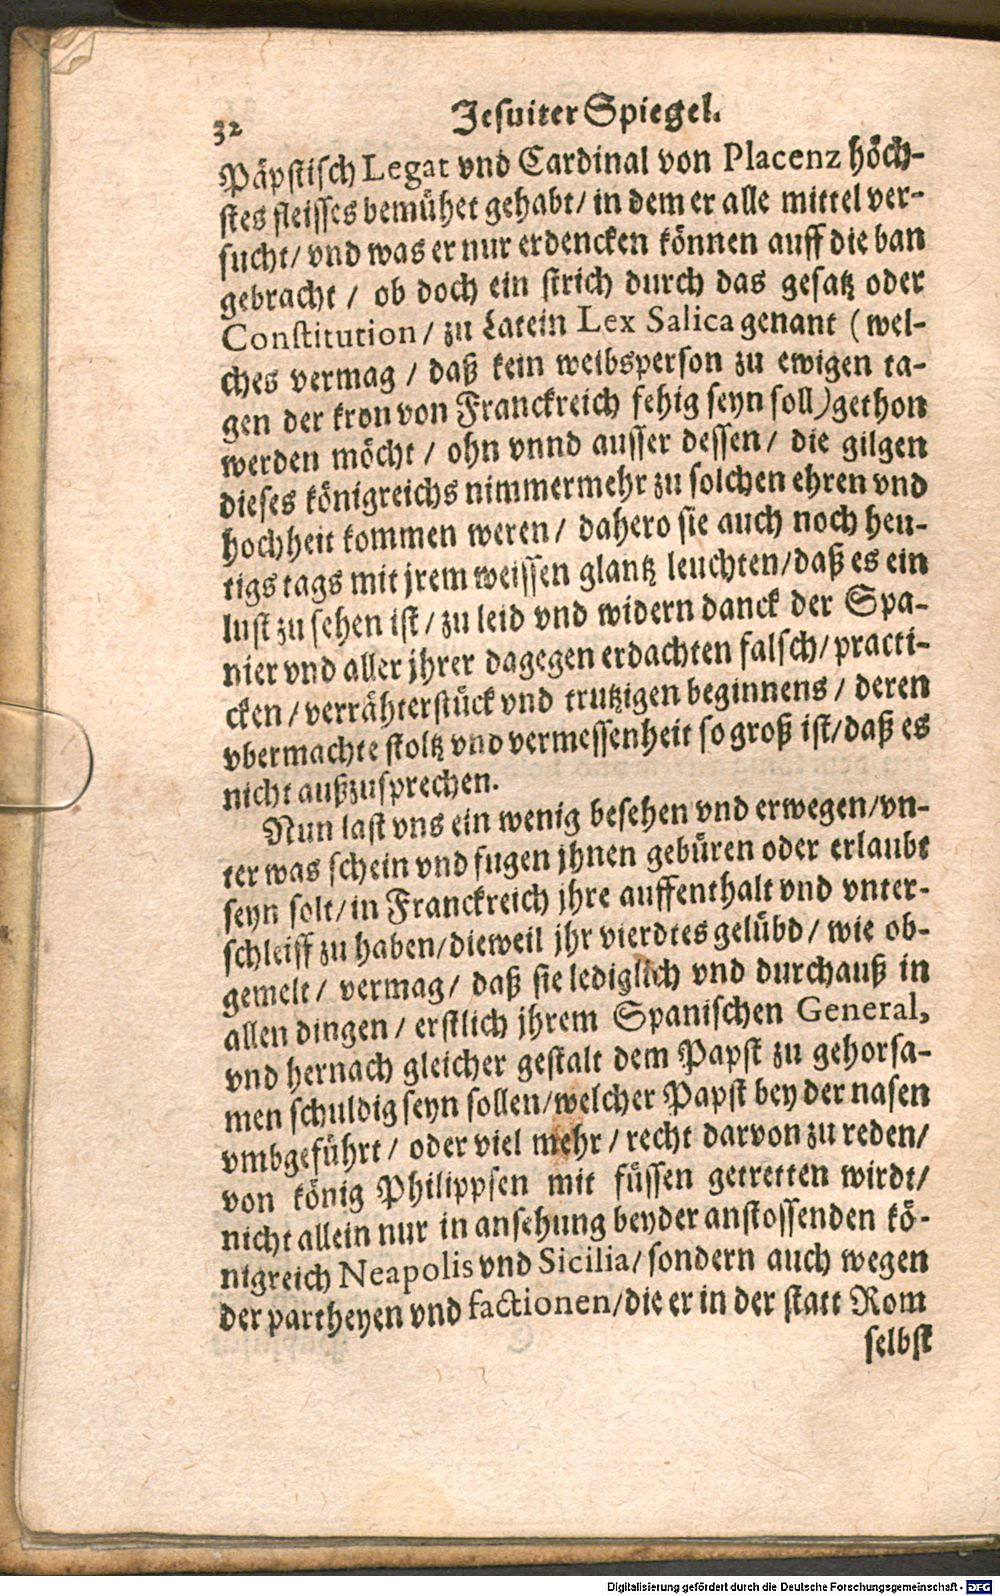 32
Jesuiter Spiegel.
Päpstisch Legat vnd Cardinal von Placenz höch-
stes fleisses bemühet gehabt/ in dem er alle mittel ver-
sucht/ vnd was er nur erdencken können auff die ban
gebracht / ob doch ein strich durch das gesatz oder
Constitution/ zu Latein Lex Salica genant (wel-
ches vermag / daß kein weibsperson zu ewigen ta-
gen der kron von Franckreich fehig seyn soll) gethon
werden möcht / ohn vnnd ausser dessen/ die gilgen
dieses königreichs nimmermehr zu solchen ehren vnd
hochheit kommen weren/ dahero sie auch noch heu-
tigs tags mit jrem weissen glantz leuchten/daß es ein
lust zu sehen ist/ zu leid vnd widern danck der Spa-
nier vnd aller jhrer dagegen erdachten falsch/ practi-
cken/ verrähterstück vnd trutzigen beginnens / deren
vbermachte stoltz vnd vermessenheit so groß ist/daß es
nicht außzusprechen.
Nun last vns ein wenig besehen vnd erwegen/vn-
ter was schein vnd fugen jhnen gebüren oder erlaubt
seyn solt/in Franckreich jhre auffenthalt vnd vnter-
schleiff zu haben/dieweil jhr vierdtes gelübd/ wie ob-
gemelt/ vermag/ daß sie lediglich vnd durchauß in
allen dingen/ erstlich jhrem Spanischen General,
vnd hernach gleicher gestalt dem Papst zu gehorsa-
men schuldig seyn sollen/welcher Papst bey der nasen
vmbgeführt/ oder viel mehr / recht darvon zu reden/
von könig Philippsen mit füssen getretten wirdt/
nicht allein nur in ansehung beyder anstossenden kö-
nigreich Neapolis vnd Sicilia/ sondern auch wegen
der partheyen vnd factionen/die er in der statt Rom
selbst
Digitalisierung gefördert durch die Deutsche Forschungsgemeinschaft - DFG